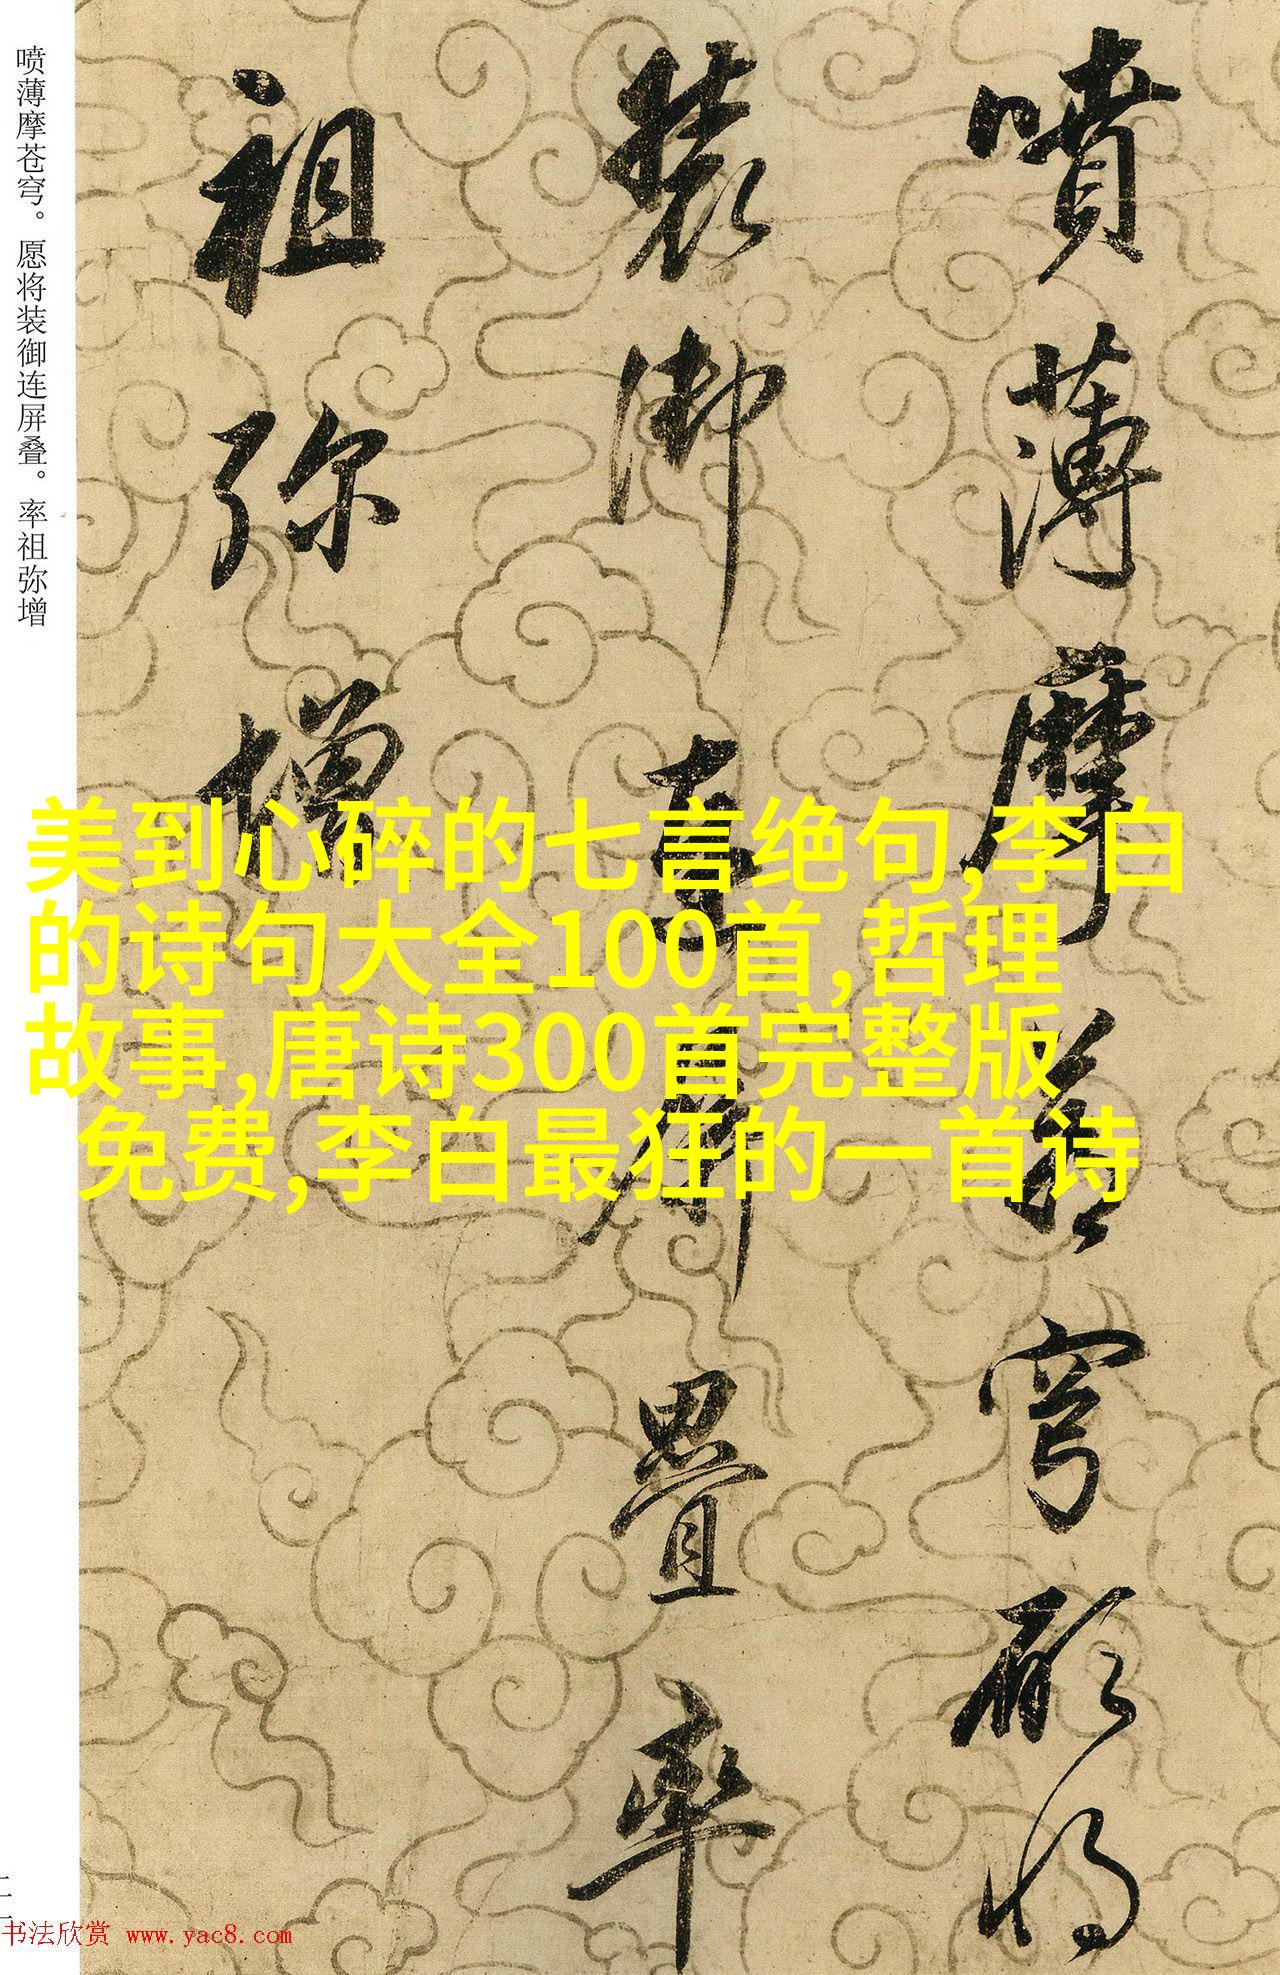 喷薄摩苍穹。愿将装御连屏叠。率祖弥增
噴薄摩蒼穹願將
裝御連屏疊率
祖弥增
美到心碎的七言绝句,李白
的诗句大全100首,哲理
故事,唐诗300首完整版
免费,李白最狂的一首诗
书法欣赏 www.yac8.com